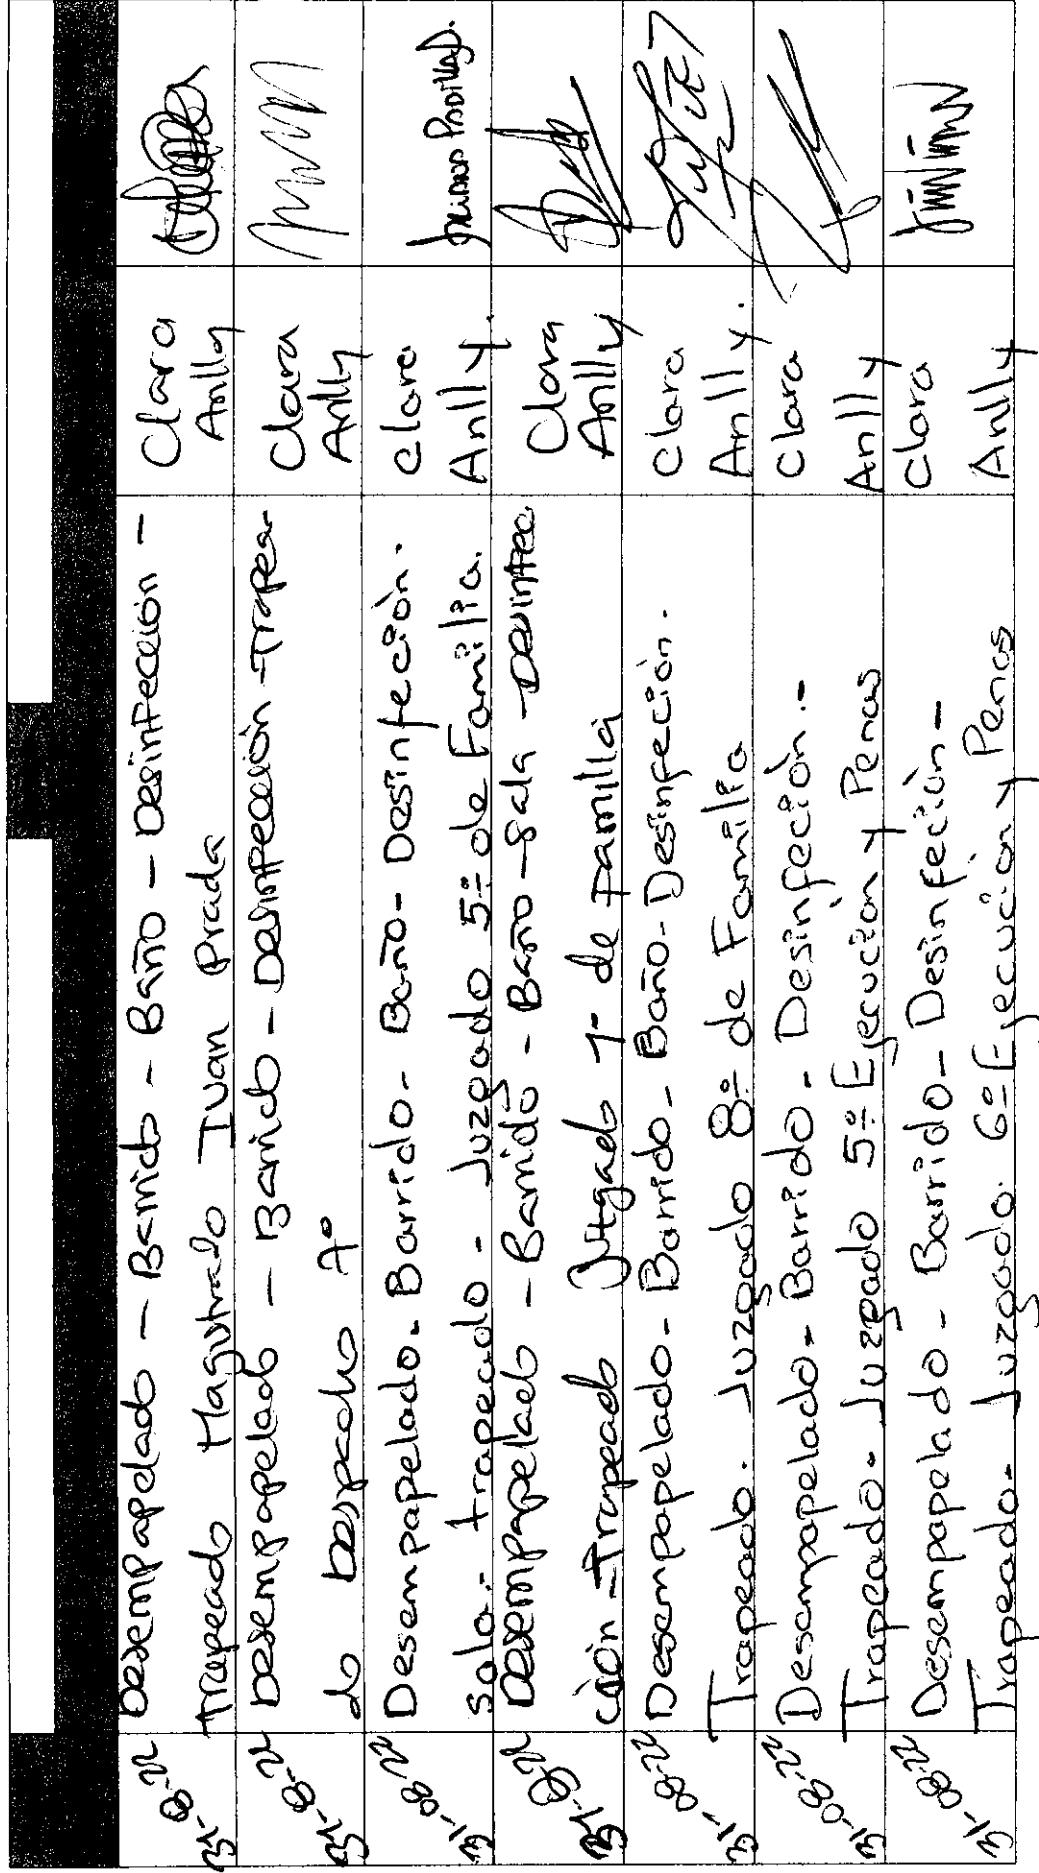 31-08-22 Desempapelado - Barrido - Baño - Desinfección - Clara
trapeado Magistrado Ivan Prada Anlly
31-08-22 Desempapelado - Barrido - Desinfección - Trapea- Clara
do Despacho 7º Anlly
31-08-22 Desempapelado - Barrido - Baño - Desinfeción. Clara
Sala - trapeado - Juzgado 5º de Familia. Anlly.
31-08-22 Desempapelado - Barrido - Baño - Sala - Desinfec Clara
ción - Trapeado Juzgado 1º de familia Anlly
31-08-22 Desempapelado - Barrido - Baño - Desinfeción. Clara
Trapeado. Juzgado 8º de Familia Anlly.
31-08-22 Desempapelado - Barrido - Desinfeción. - Clara
Trapeado - Juzgado 5º Ejecución y Penas Anlly
31-08-22 Desempapelado - Barrido - Desinfeción - Clara
Trapeado - Juzgado 6º Ejecución y Penas Anlly